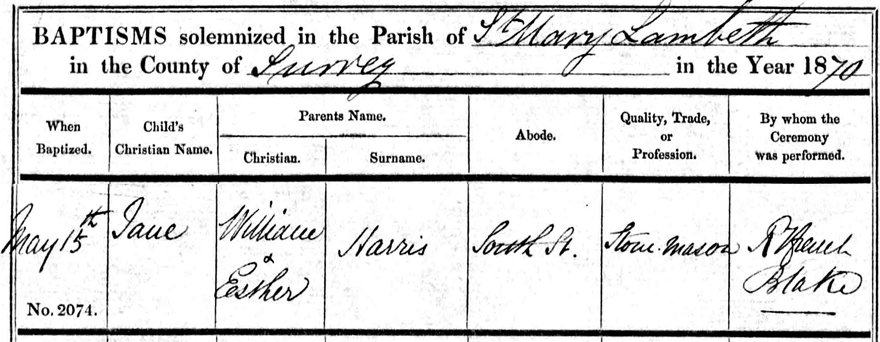 BAPTISMS solemnized in the Parish of St Mary Lambeth
in the County of Surrey in the Year 1870
When Baptized.
Child's Christian Name.
Parents Name.
Christian.
Surname.
Abode.
Quality, Trade, or Profession.
By whom the Ceremony was performed.
May 15th
No. 2074.
Jane
William
&
Esther
Harris
South St.
Stone Mason
Blake